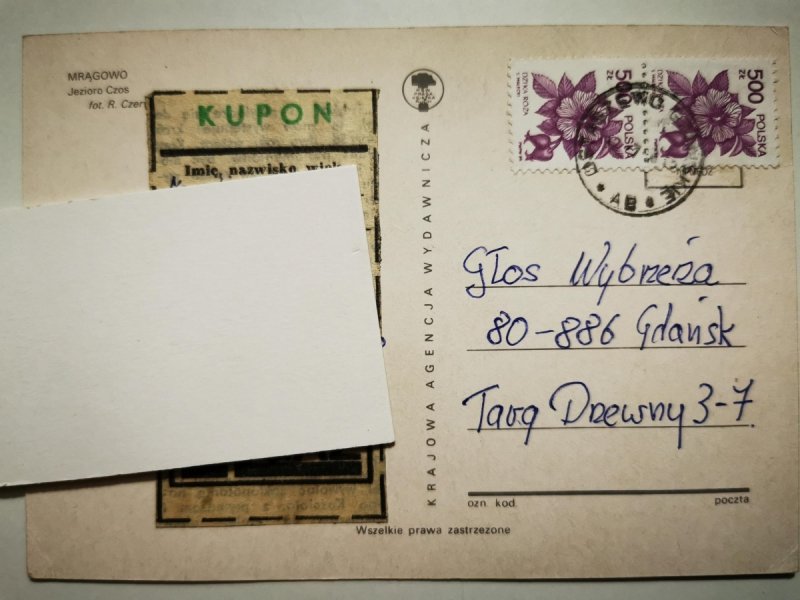 MRĄGOWO
Jezioro Czos
fot. R. Czer
KUPON
Imię, nazwisko, wiek
KRAJOWA AGENCJA WYDAWNICZA
500 ZŁ
DZIKA RÓŻA
POLSKA
500 ZŁ
DZIKA RÓŻA
POLSKA
AB
Głos Wybrzeża
80-886 Gdańsk
Targ Drzewny 3-7
ozn. kod.
poczta
Wszelkie prawa zastrzeżone